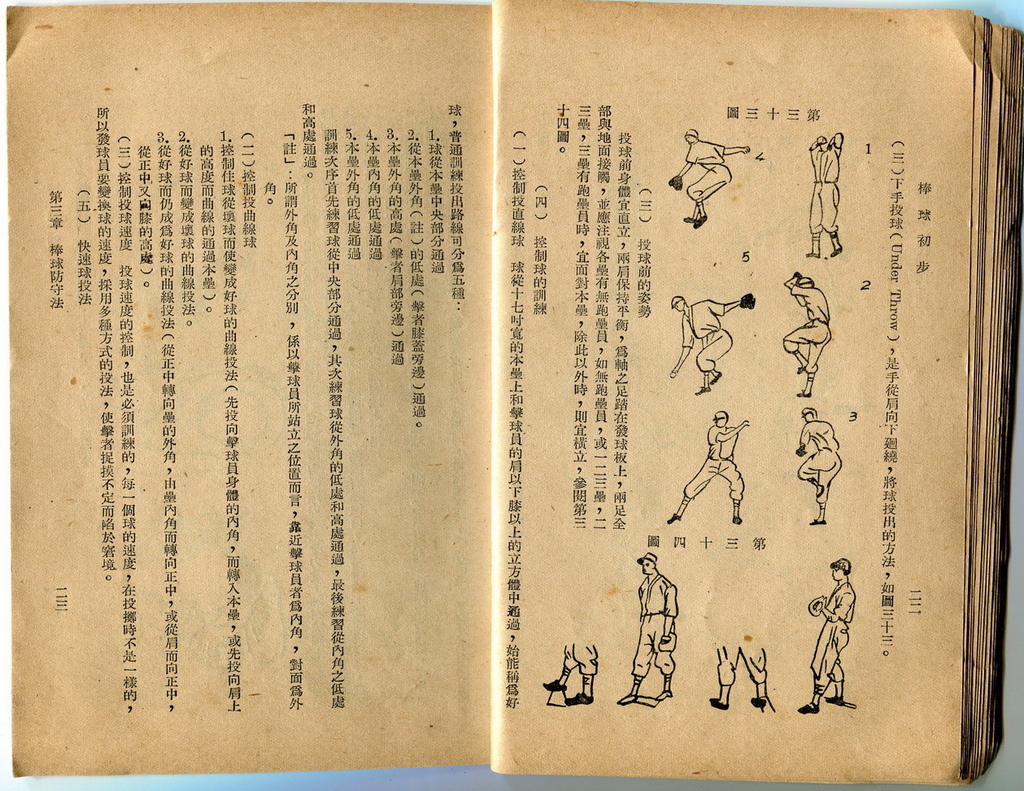 棒球初步
二二
(三)下手投球(Under Throw),是手從肩向下廻繞,將球投出的方法,如圖三十三。
第三十三圖
1
2
3
4
5
第三十四圖
(三) 投球前的姿勢
投球前身體宜直立,兩肩保持平衡,爲軸之足踏在發球板上,兩足全
部與地面接觸,並應注視各壘有無跑壘員,如無跑壘員,或一二三壘,二
三壘,三壘有跑壘員時,宜面對本壘,除此以外時,則宜橫立,參閱第三
十四圖。
(四) 控制球的訓練
(一)控制投直線球 球從十七吋寬的本壘上和擊球員的肩以下膝以上的立方體中通過,始能稱爲好
球,普通訓練投出路線可分爲五種:
1.球從本壘中央部分通過
2.從本壘外角(註)的低處(擊者膝蓋旁邊)通過。
3.本壘外角的高處(擊者肩部旁邊)通過
4.本壘內角的低處通過
5.本壘外角的低處通過
訓練次序首先練習球從中央部分通過,其次練習球從外角的低處和高處通過,最後練習從內角之低處
和高處通過。
「註」:所謂外角及內角之分別,係以擊球員所站立之位置而言,靠近擊球員者爲內角,對面爲外
角。
(二)控制投曲線球
1.控制住球從壞球而使變成好球的曲線投法(先投向擊球員身體的內角,而轉入本壘,或先投向肩上
的高度而曲線的通過本壘)。
2.從好球而變成壞球的曲線投法。
3.從好球而仍成爲好球的曲線投法(從正中轉向壘的外角,由壘內角而轉向正中,或從肩而向正中,
從正中又向膝的高處)。
(三)控制投球速度 投球速度的控制,也是必須訓練的,每一個球的速度,在投擲時不是一樣的,
所以發球員要變換球的速度,採用多種方式的投法,使擊者捉摸不定而陷於窘境。
(五) 快速球投法
第三章 棒球防守法
二三